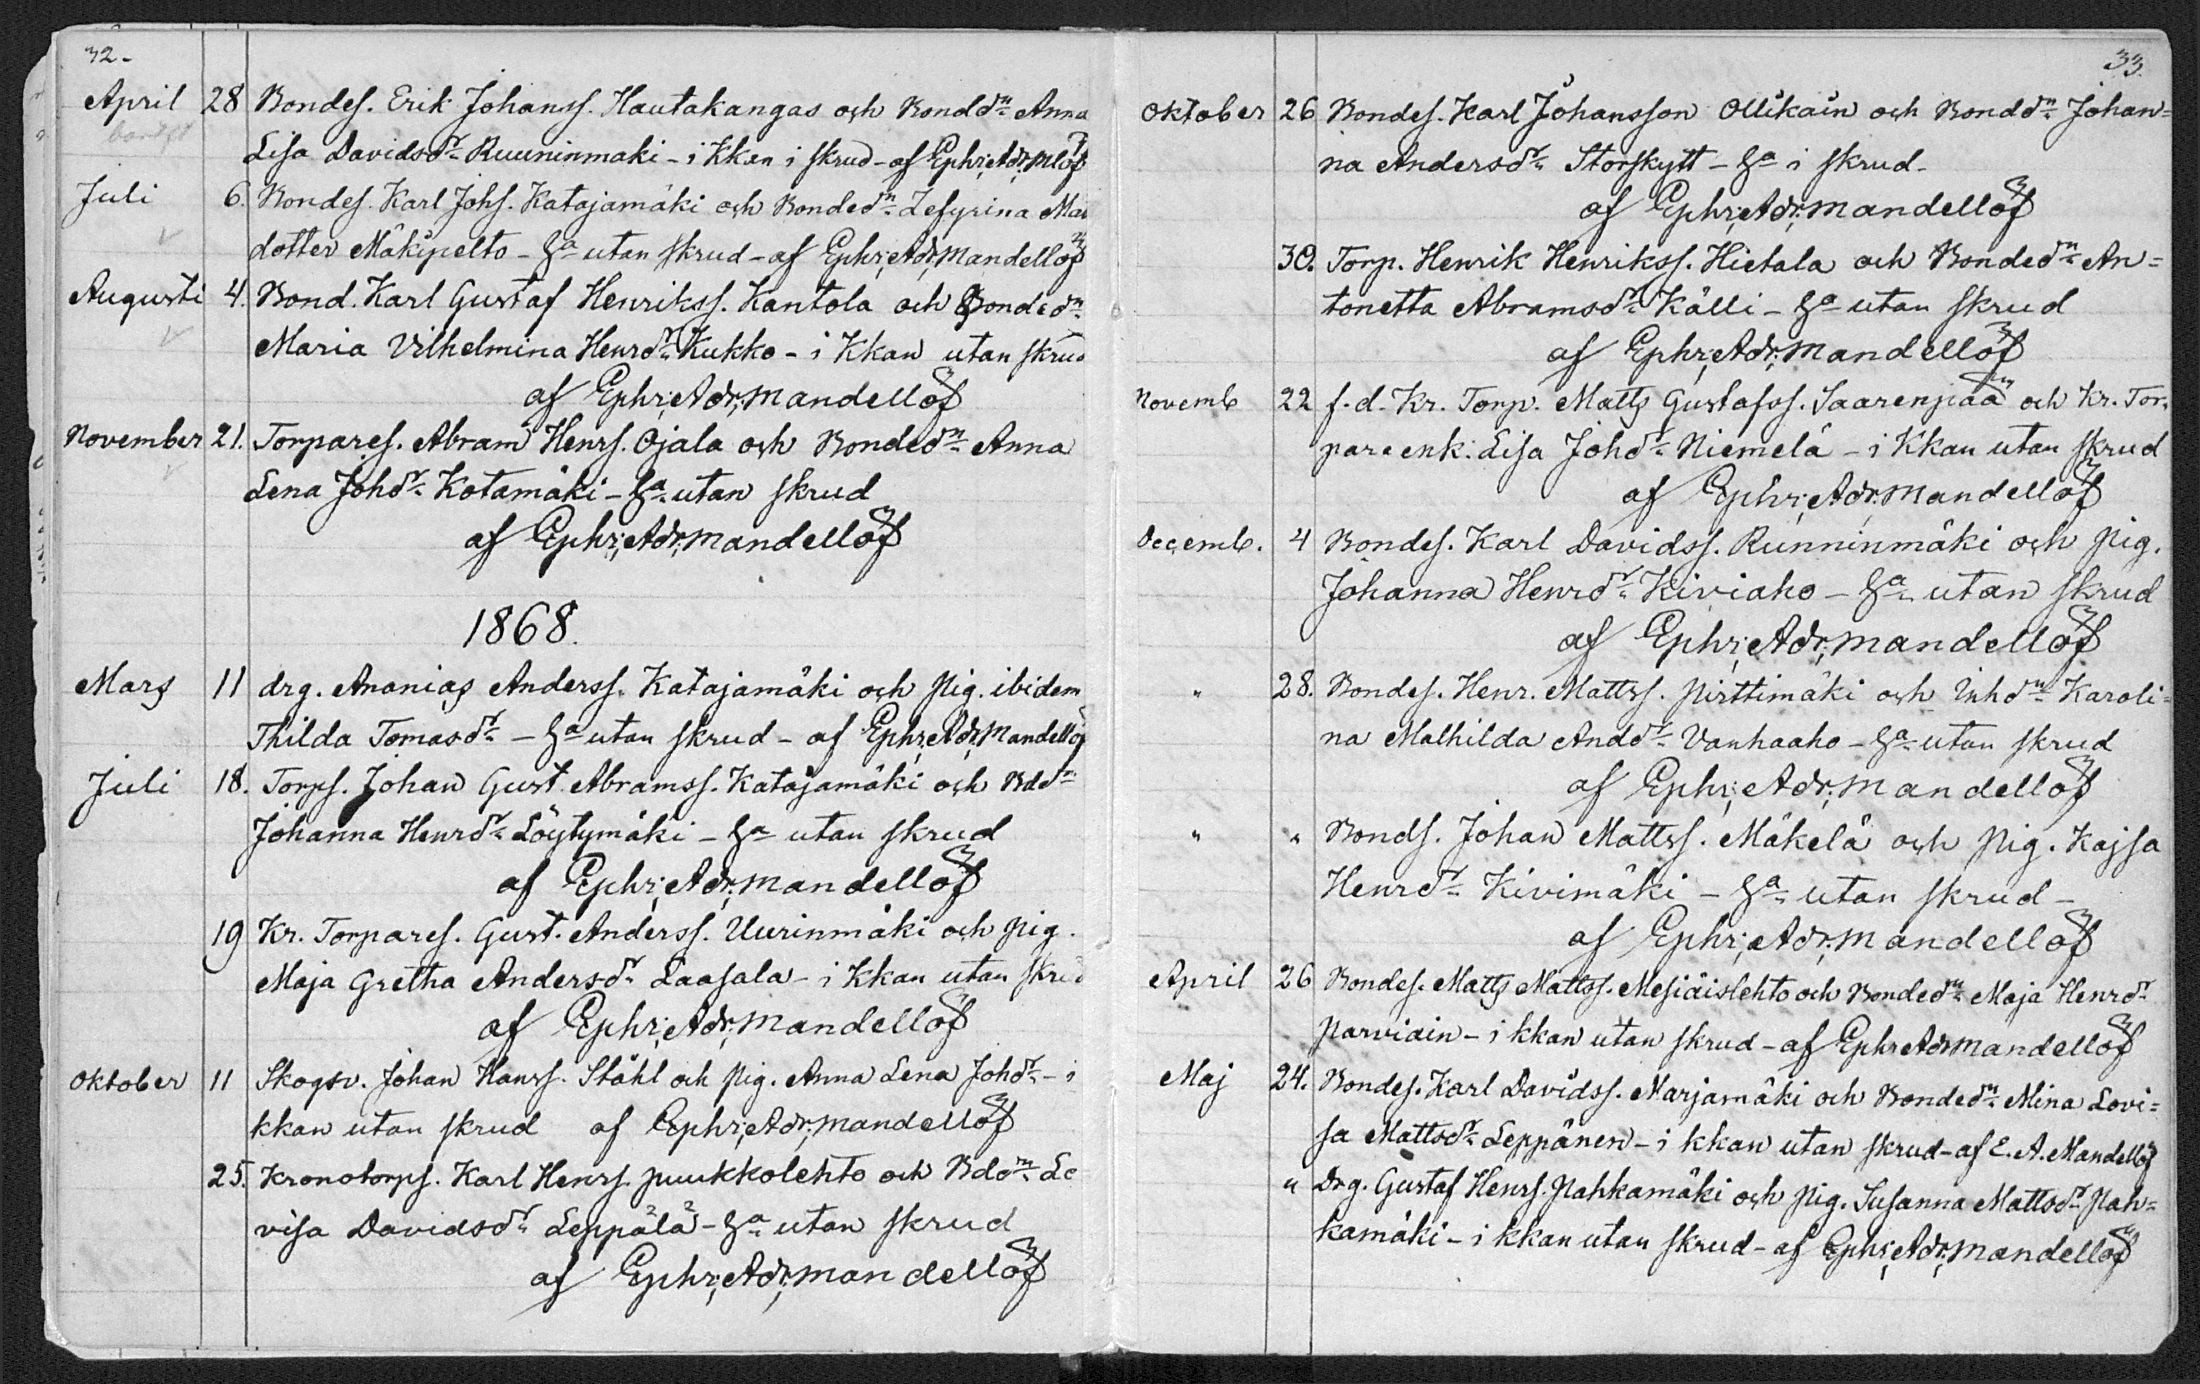 32.
April 28 Bondes. Erik Johanss. Hautakangas och Bondd:n Anna
Lisa Davidsd:r Ruuninmaki - i Kkan i skrud - af Ephr; Adr; Mlöf
Juli 6. Bondes. Karl Johs. Katajamäki och Bonded:n Zefyrina Mat
dotter Mäkipelto - d:a utan skrud - af Ephr; Adr; Mandellöf
Augusti 4. Bond. Karl Gustaf Henrikss. Kantola och Bonded:n
Maria Vilhelmina Henrd:r Kukko - i Kkan utan skrud
af Ephr; Adr; Mandellöf
November 21. Torpares. Abram Henrs. Ojala och Bonded:n Anna
Lena Johd:r Kotamäki - d:a utan skrud
af Ephr; Adr; Mandellöf
1868.
Mars 11 drg. Ananias Anderss. Katajamäki och pig. ibidem
Thilda Tomasd:r - d:a utan skrud - af Ephr; Adr; Mandellöf
Juli 18. Torps. Johan Gust. Abramss. Katajamäki och Bdd:n
Johanna Henrd:r Löytymäki - d:a utan skrud
af Ephr; Adr; Mandellöf
19 Kr. Torpares. Gust. Anderss. Uurinmäki och pig.
Maja Gretha Andersd:r Laasala - i Kkan utan skrud
af Ephr; Adr; Mandellöf
Oktober 11 Skogsv. Johan Hanss. Ståhl och pig. Anna Lena Johd:r - i
kkan utan skrud af Ephr; Adr; Mandellöf
25. Kronotorps. Karl Henrs. Puukkolehto och Bdd:n Lo
visa Davidsd:r Leppälä - d:a utan skrud
af Ephr; Adr; Mandellöf
33.
Oktober 26 Bondes. Karl Johansson Ollikain och Bondd:n Johan=
na Andersd:r Storskytt - d:a i skrud -
af Ephr; Adr; Mandellöf
30. Torp. Henrik Henrikss. Hietala och Bonded:n An=
tonetta Abramsd:r Källi - d:a utan skrud
af Ephr; Adr; Mandellöf
Novemb 22 f.d. Kr. Torp. Matts Gustafss. Saarenpää och Kr. Tor=
pareenk: Lisa Johd:r Niemelä - i Kkan utan skrud
af Ephr; Adr; Mandellöf
Decemb. 4 Bondes. Karl Davidss. Runninmäki och pig.
Johanna Henrd:r Kiviaho - d:a utan skrud
af Ephr; Adr; Mandellöf
" 28. Bondes. Henr. Mattss. Pirttimäki och Inhd:n Karoli=
na Mathilda Andd:r Vanhaaho - d:a utan skrud
af Ephr; Adr; Mandellöf
" " Bonds. Johan Mattss. Mäkelä och pig. Kajsa
Henrd:r Kivimäki - d:a utan skrud -
af Ephr; Adr; Mandellöf
April 26 Bondes. Matts Mattss. Mesiäislehto och Bonded:n Maja Henrd:r
Parviain - i kkan utan skrud - af Ephr Adr Mandellöf
Maj 24. Bondes. Karl Davidss. Marjamäki och Bonded:n Mina Lovi=
sa Mattsd:r Leppänen - i kkan utan skrud - af E. A. Mandellöf
" Drg. Gustaf Henrs. Pahkamäki och pig. Susanna Mattsd:r Pah=
kamäki - i kkan utan skrud - af Ephr; Adr; Mandellöf